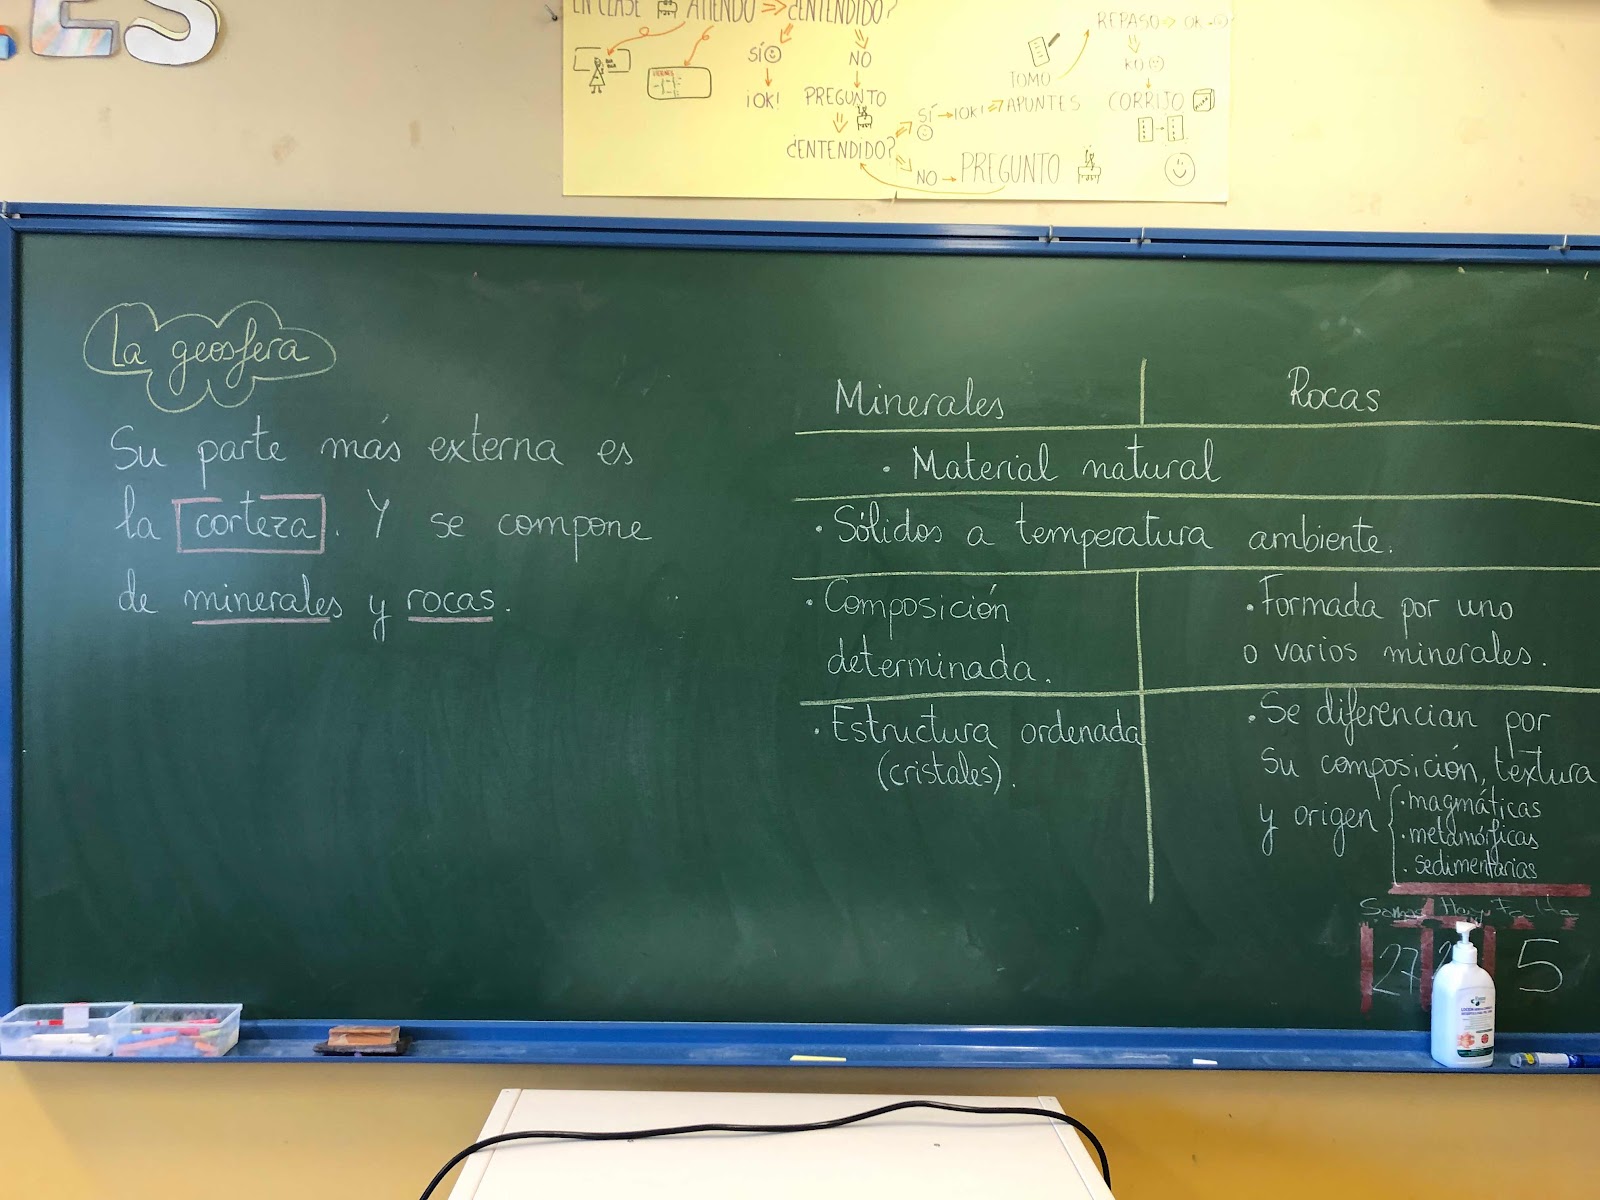 ES
EN CLASE ATIENDO ⇒ ¿ENTENDIDO?
SÍ
NO
¡OK!
PREGUNTO
¿ENTENDIDO?
SÍ → ¡OK! ⇒ APUNTES
TOMO
NO → PREGUNTO
REPASO ⇒ OK
KO
CORRIJO
La geosfera
Su parte más externa es
la corteza. Y se compone
de minerales y rocas.
Minerales
Rocas
· Material natural
· Sólidos a temperatura ambiente.
· Composición
determinada.
· Formada por uno
o varios minerales.
· Estructura ordenada
(cristales).
· Se diferencian por
su composición, textura
y origen
· magmáticas
· metamórficas
· sedimentarias
Somos Hay Falta
27
5